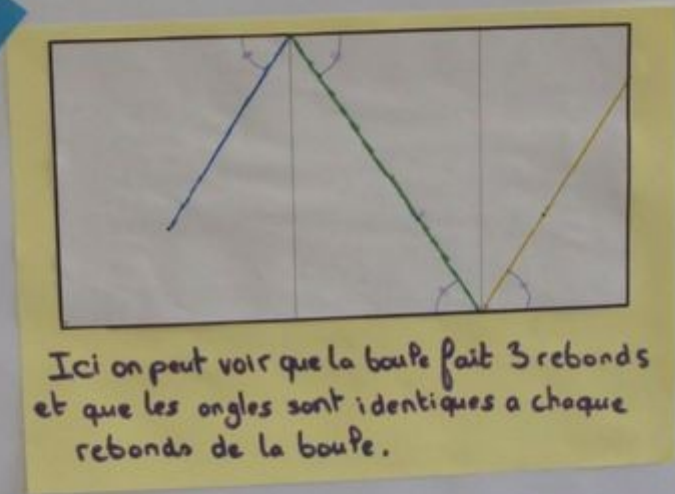 Ici on peut voir que la boule fait 3 rebonds
et que les angles sont identiques a chaque
rebonds de la boule.